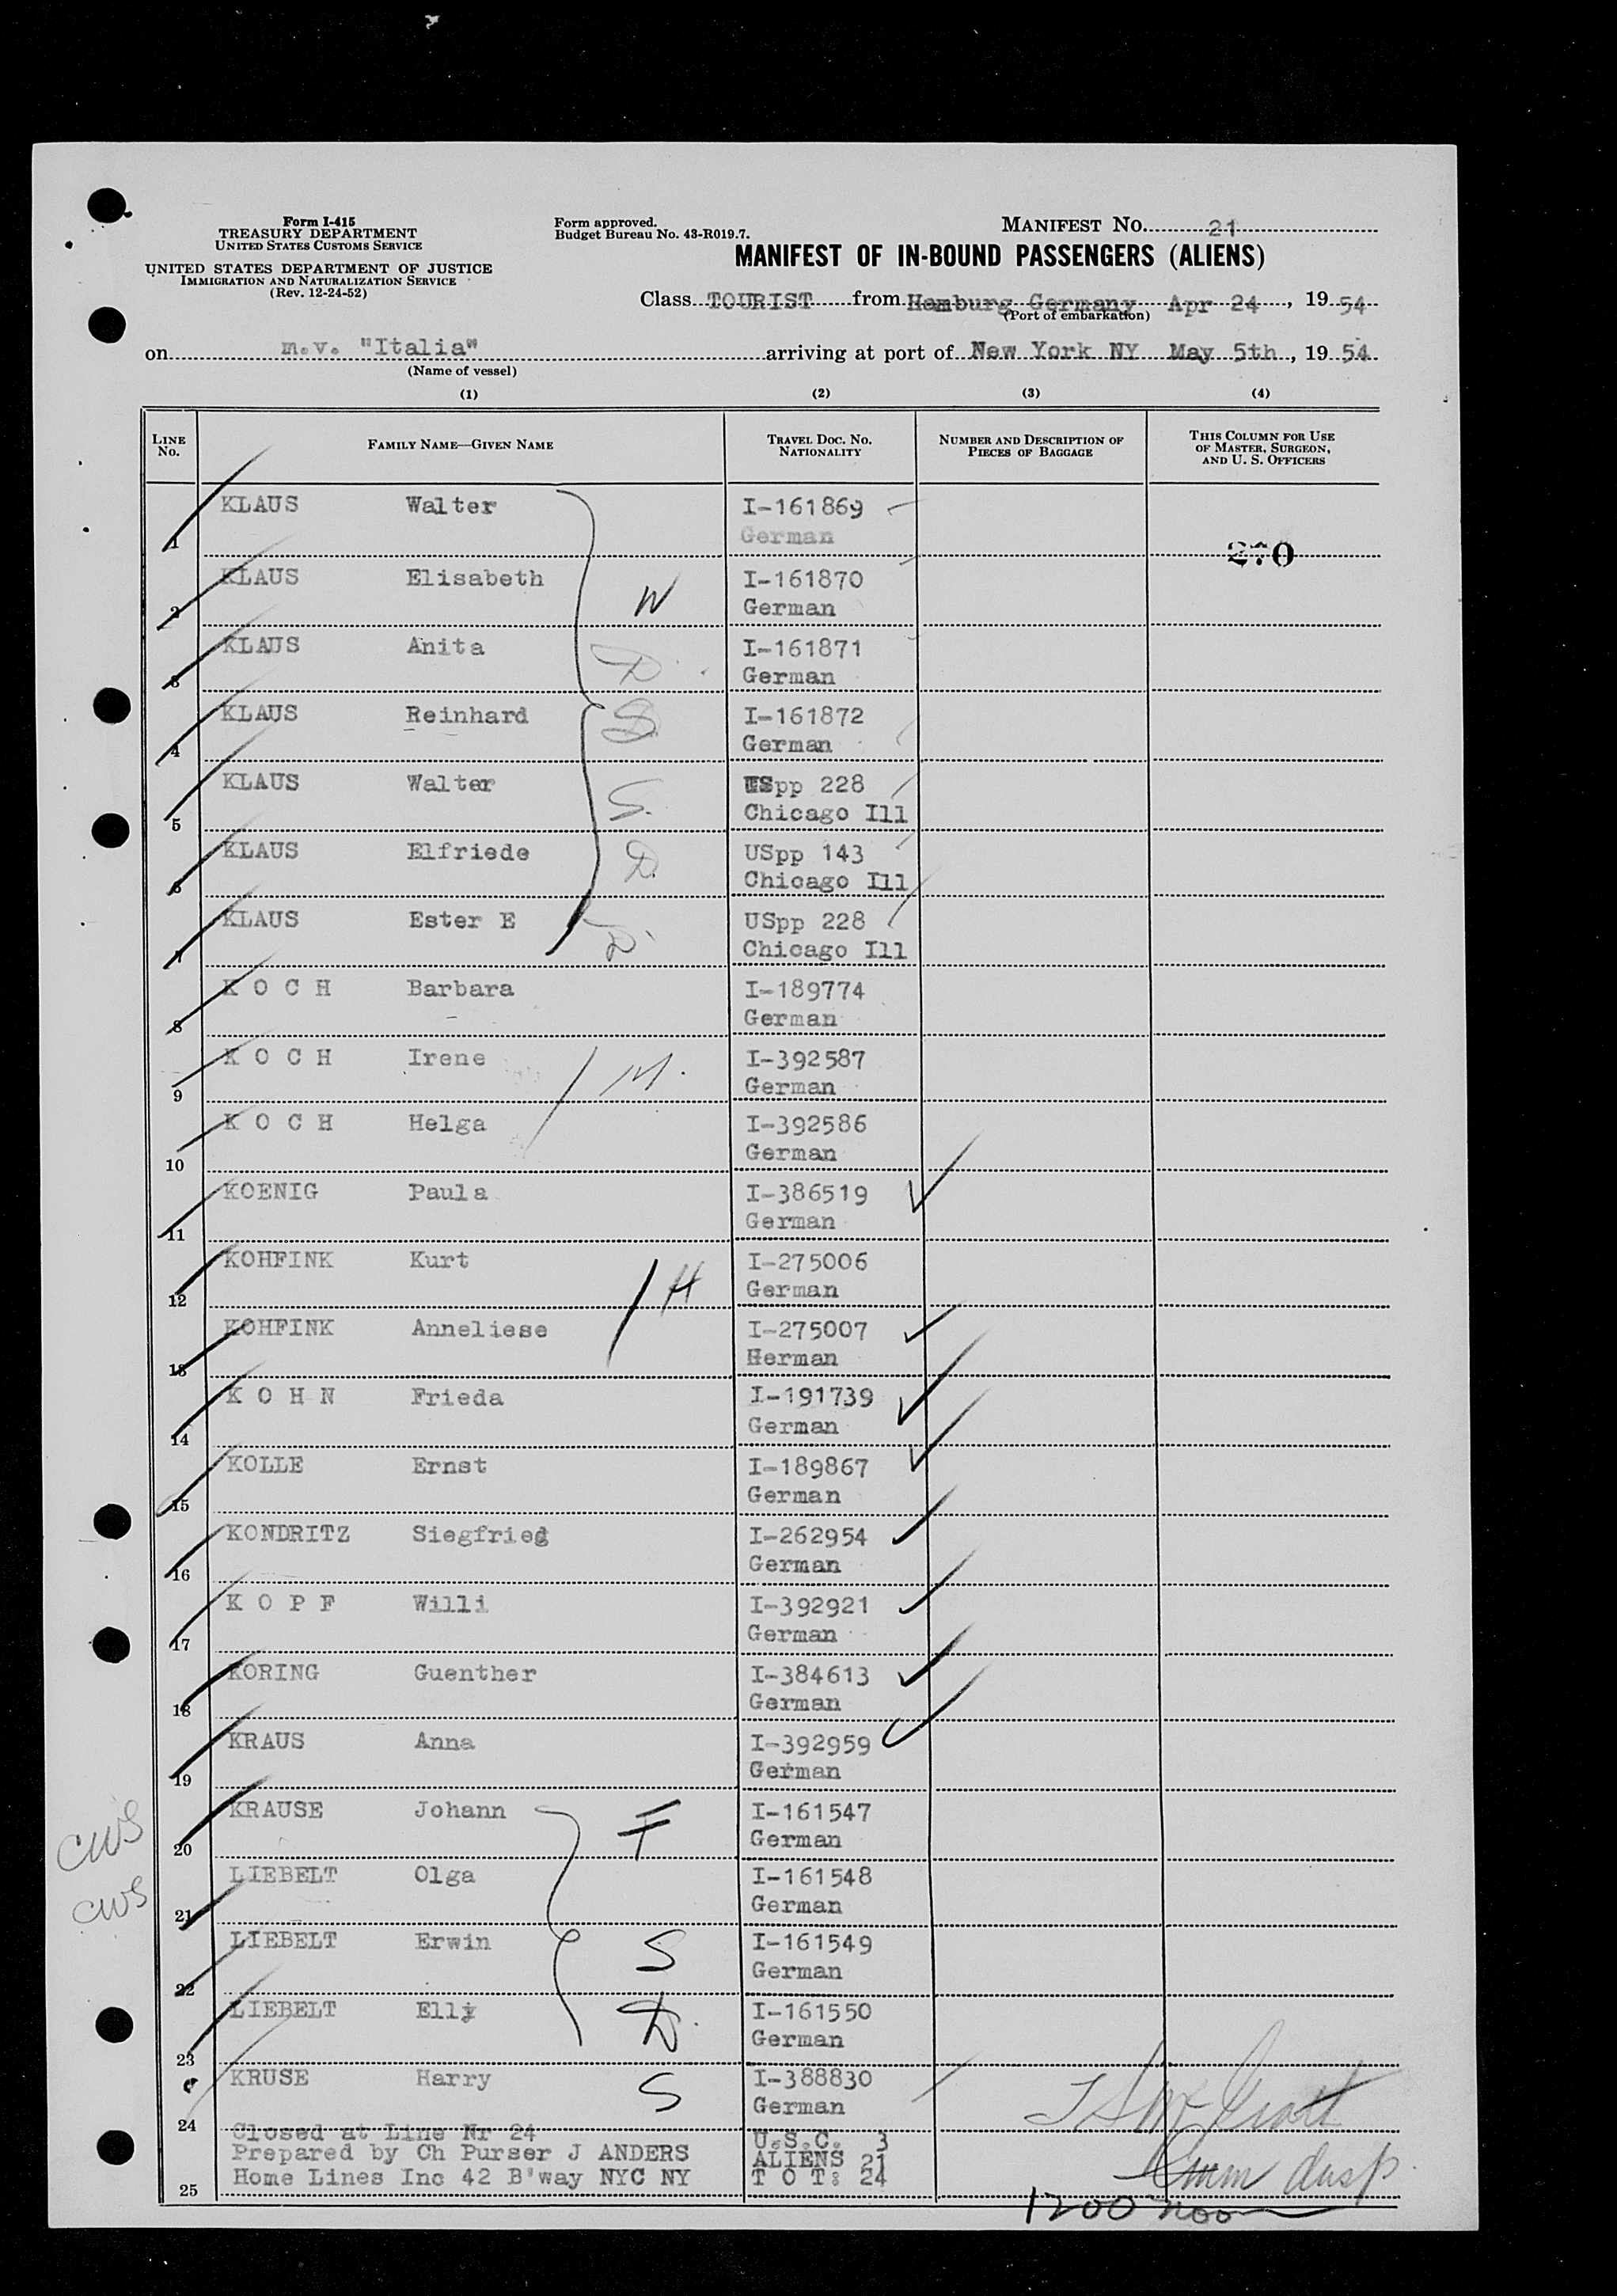 Form I-415
TREASURY DEPARTMENT
UNITED STATES CUSTOMS SERVICE
UNITED STATES DEPARTMENT OF JUSTICE
IMMIGRATION AND NATURALIZATION SERVICE
(Rev. 12-24-52)
Form approved.
Budget Bureau No. 43-R019.7.
MANIFEST NO. 21
MANIFEST OF IN-BOUND PASSENGERS (ALIENS)
Class TOURIST from Hamburg Germany Apr 24, 19 54
(Port of embarkation)
on m.v. "Italia" arriving at port of New York NY May 5th, 19 54
(Name of vessel)
(1) (2) (3) (4)
LINE No.
FAMILY NAME—GIVEN NAME
TRAVEL DOC. NO. NATIONALITY
NUMBER AND DESCRIPTION OF PIECES OF BAGGAGE
THIS COLUMN FOR USE OF MASTER, SURGEON, AND U. S. OFFICERS
KLAUS Walter I-161869
1 German 270
KLAUS Elisabeth I-161870
2 W German
KLAUS Anita I-161871
3 D German
KLAUS Reinhard S I-161872
4 German
KLAUS Walter USpp 228
5 S. Chicago Ill
KLAUS Elfriede USpp 143
6 D. Chicago Ill
KLAUS Ester E USpp 228
7 D Chicago Ill
K O C H Barbara I-189774
8 German
K O C H Irene I-392587
9 M. German
K O C H Helga I-392586
10 German
KOENIG Paula I-386519
11 German
KOHFINK Kurt I-275006
12 H German
KOHFINK Anneliese I-275007
13 Herman
K O H N Frieda I-191739
14 German
KOLLE Ernst I-189867
15 German
KONDRITZ Siegfried I-262954
16 German
K O P F Willi I-392921
17 German
KORING Guenther I-384613
18 German
KRAUS Anna I-392959
19 German
KRAUSE Johann F I-161547
cws 20 German
LIEBELT Olga I-161548
cws 21 German
LIEBELT Erwin S I-161549
22 German
LIEBELT Elly D. I-161550
23 German
KRUSE Harry S I-388830
24 German
Closed at Line Nr 24 U.S.C. 3
Prepared by Ch Purser J ANDERS ALIENS 21
25 Home Lines Inc 42 B'way NYC NY T O T: 24
Imm Insp.
1200 noon